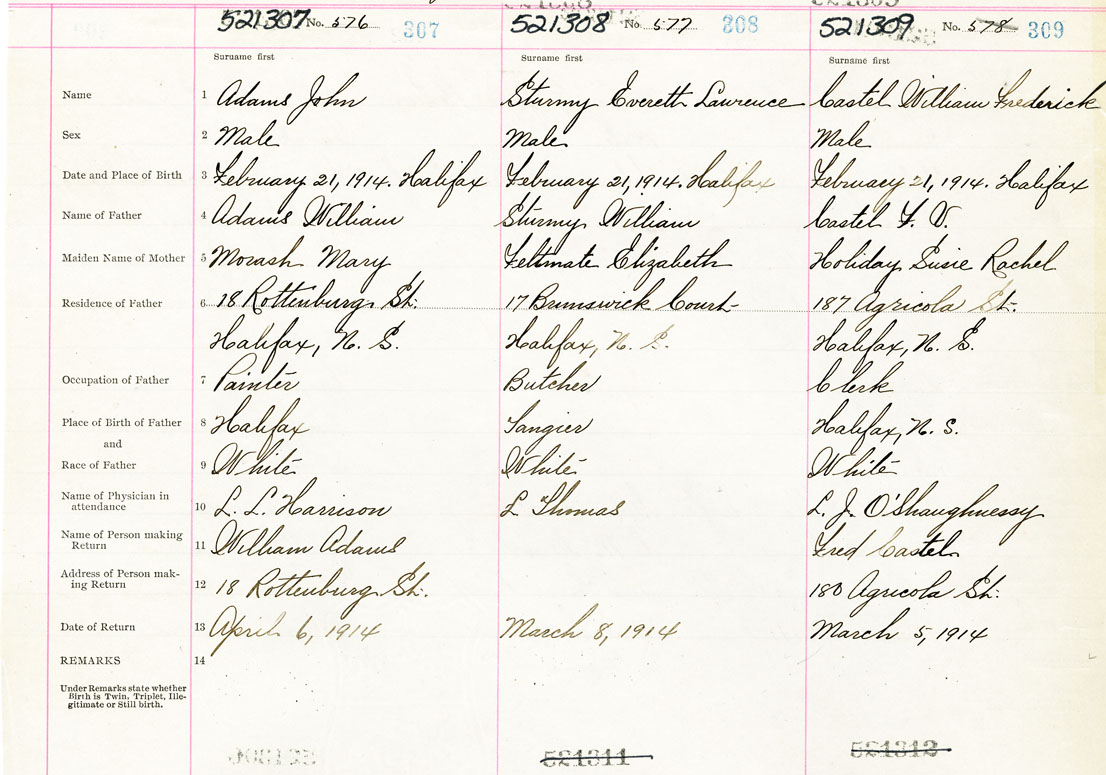 521307 No. 576 307 521308 No. 577 308 521309 No. 578 309
Surname first Surname first Surname first
Name 1 Adams John Sturmy Everett Lawrence Castel William Frederick
Sex 2 Male Male Male
Date and Place of Birth 3 February 21, 1914. Halifax February 21, 1914. Halifax February 21, 1914. Halifax
Name of Father 4 Adams William Sturmy William Castel F. V.
Maiden Name of Mother 5 Morash Mary Feltmate Elizabeth Holiday Susie Rachel
Residence of Father 6 18 Rottenburg St. 17 Brunswick Court 187 Agricola St.
Halifax, N. S. Halifax, N. S. Halifax, N. S.
Occupation of Father 7 Painter Butcher Clerk
Place of Birth of Father 8 Halifax Tangier Halifax, N. S.
and
Race of Father 9 White White White
Name of Physician in
attendance 10 L. L. Harrison L Thomas L. J. O'Shaughnessy
Name of Person making
Return 11 William Adams Fred Castel
Address of Person mak-
ing Return 12 18 Rottenburg St. 180 Agricola St.
Date of Return 13 April 6, 1914 March 8, 1914 March 5, 1914
REMARKS 14
Under Remarks state whether
Birth is Twin, Triplet, Ille-
gitimate or Still birth.
521311 521312